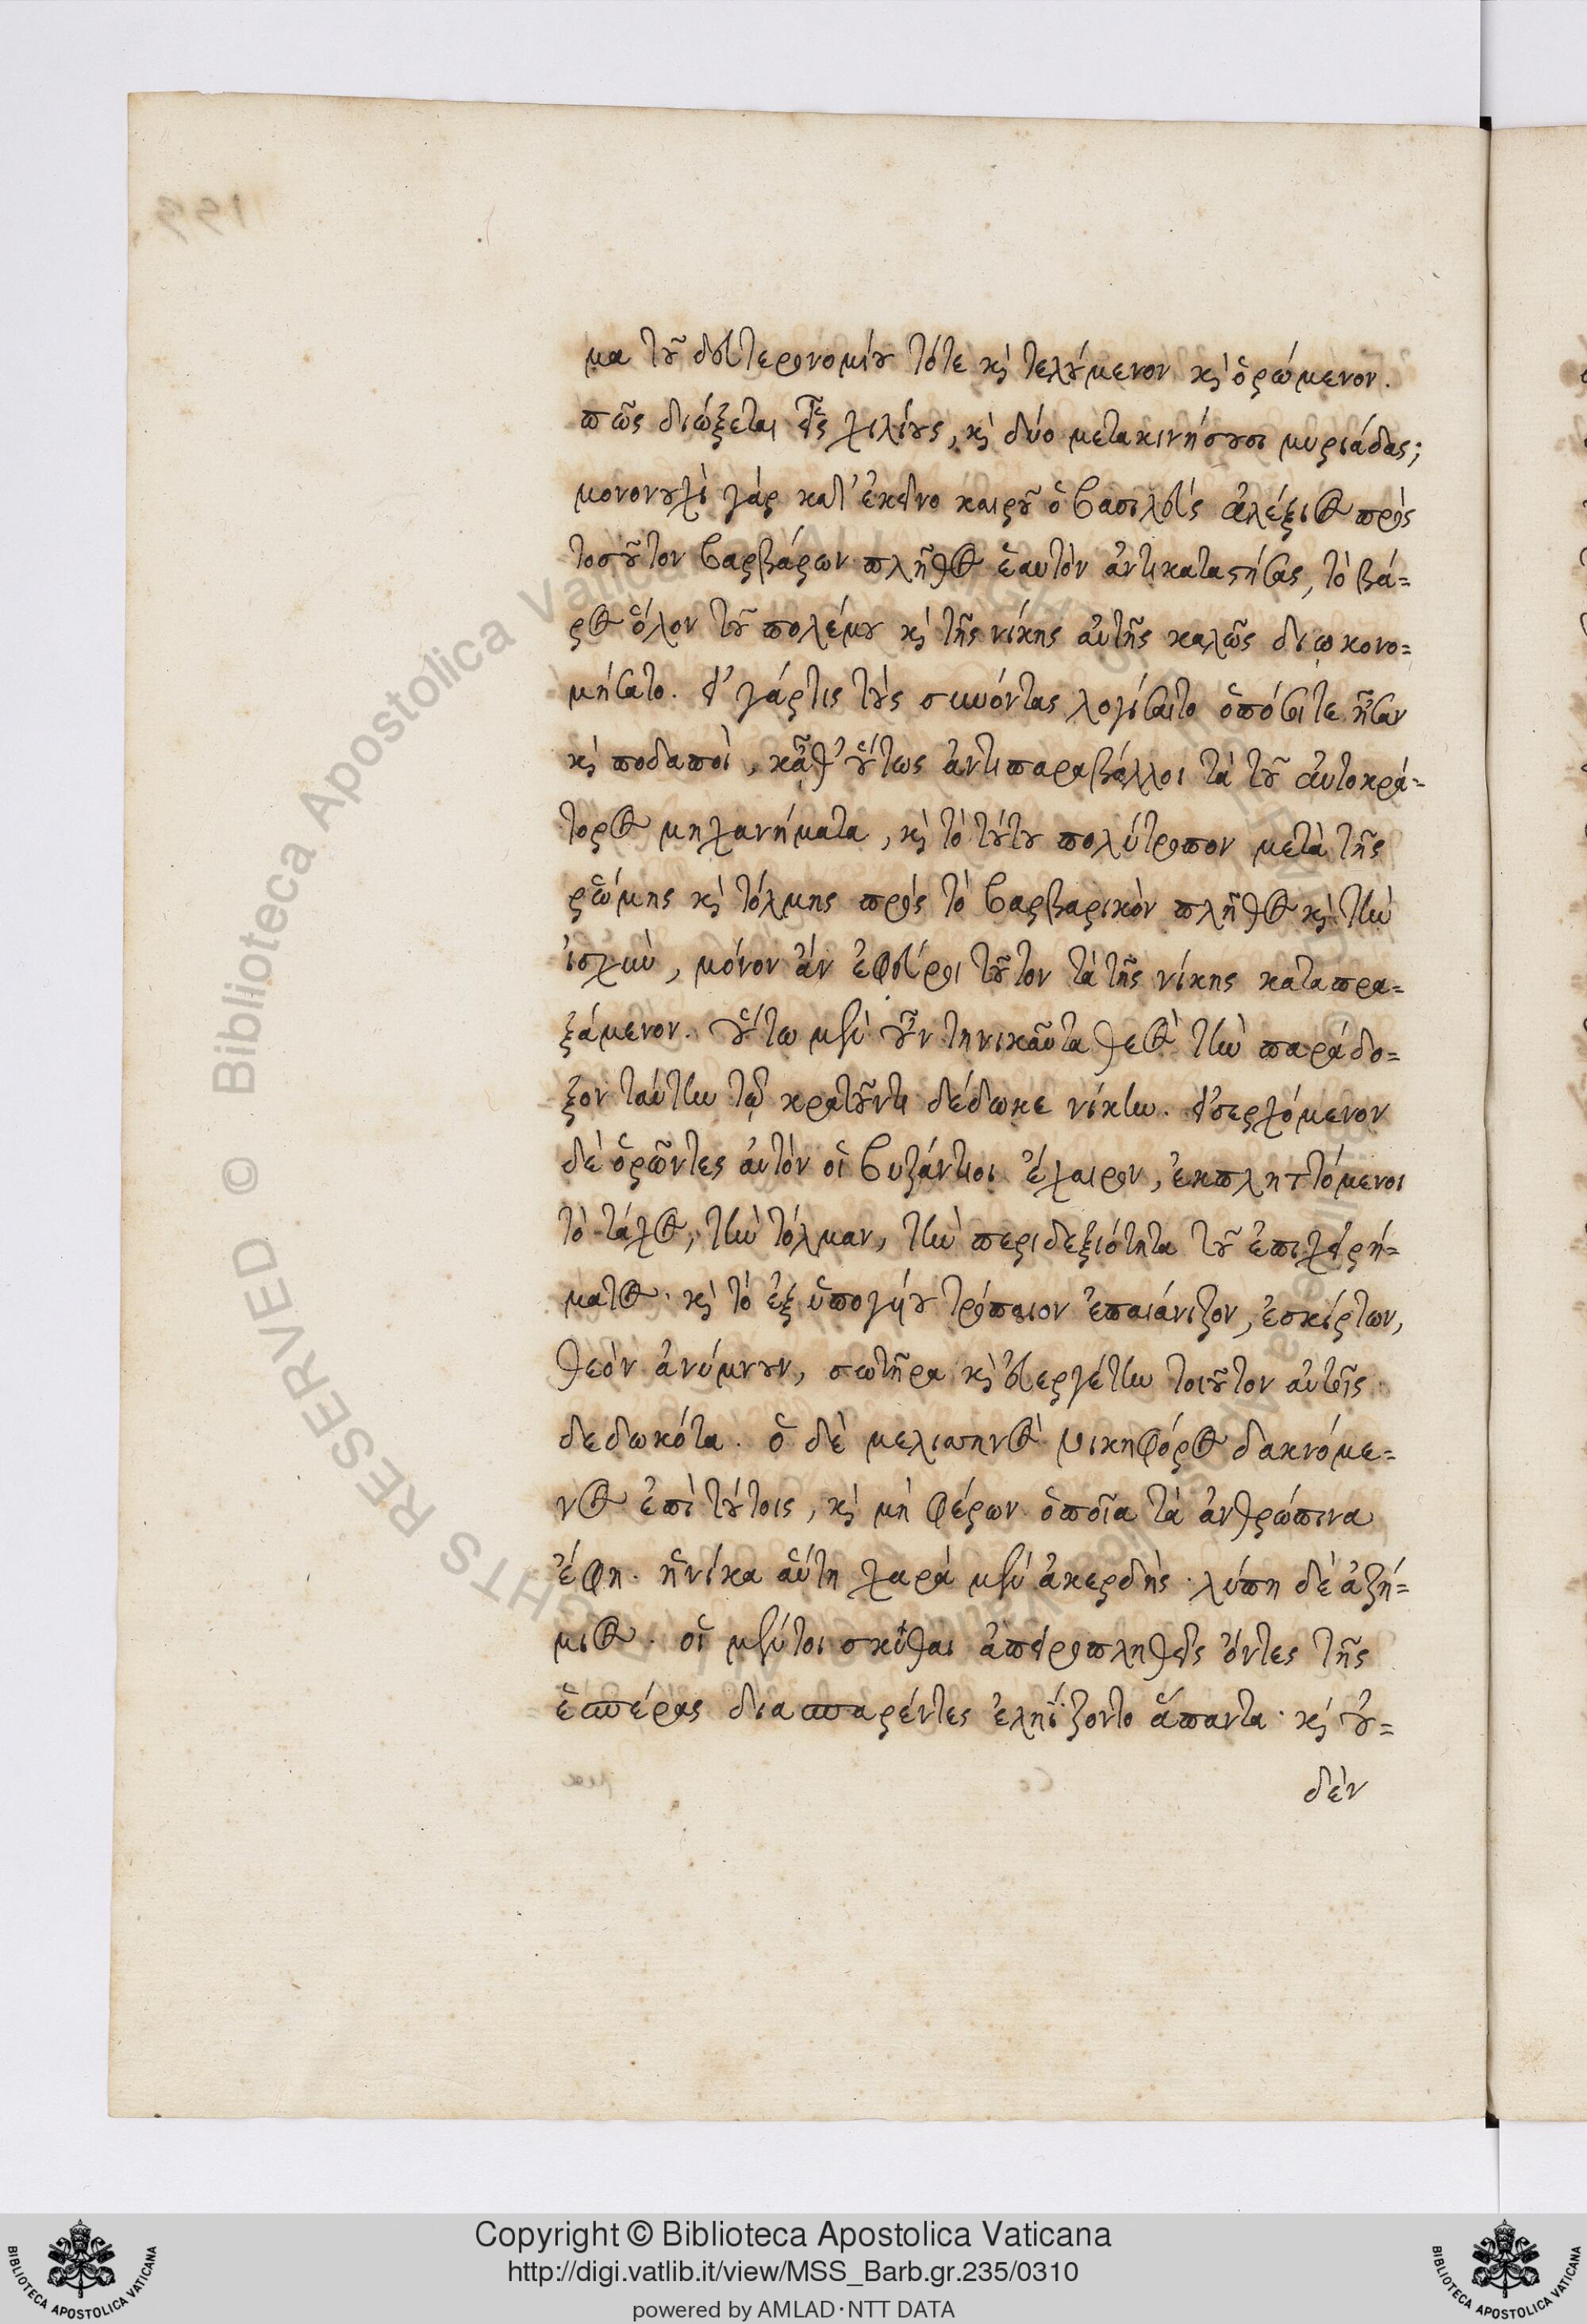 μα τοῦ δευτερονομίου τότε καὶ τελούμενον καὶ ὁρώμενον.
πῶς διώξεται εἷς χιλίους, καὶ δύο μετακινήσουσι μυριάδας;
μονονουχὶ γάρ κατ' ἐκεῖνο καιροῦ ὁ βασιλεὺς ἀλέξιος πρὸς
τοσοῦτον βαρβάρων πλῆθος ἑαυτὸν ἀντικαταστήσας, τὸ βά=
ρος ὅλον τοῦ πολέμου καὶ τῆς νίκης αὐτῆς καλῶς διωκονο=
μήσατο. εἰ γάρ τις τοὺς συνόντας λογίσαιτο ὁπόσοι τε ἦσαν
καὶ ποδαποὶ, κᾆθ' οὕτως ἀντιπαραβάλλοι τὰ τοῦ αὐτοκρά=
τορος μηχανήματα, καὶ τὸ τούτου πολύτροπον μετὰ τῆς
ῥώμης καὶ τόλμης πρὸς τὸ βαρβαρικὸν πλῆθος καὶ τὴν
ἰσχὺν, μόνον ἂν ἐφεύροι τοῦτον τὰ τῆς νίκης καταπρα=
ξάμενον. οὕτω μὲν οὖν τηνικαῦτα θεὸς τὴν παράδο=
ξον ταύτην τῷ κρατοῦντι δέδωκε νίκην. εἰσερχόμενον
δὲ ὁρῶντες αὐτὸν οἱ βυζάντιοι ἔχαιρον, ἐκπληττόμενοι
τὸ τάχος, τὴν τόλμαν, τὴν περιδεξιότητα τοῦ ἐπιχειρή=
ματος· καὶ τὸ ἐξ ὑπογύου τρόπαιον ἐπαιάνιζον, ἐσκίρτων,
θεὸν ἀνύμνουν, σωτῆρα καὶ εὐεργέτην τοιοῦτον αὐτοῖς
δεδωκότα. ὁ δὲ μελισηνὸς νικηφόρος δακνόμε=
νος ἐπὶ τούτοις, καὶ μὴ φέρων ὁποῖα τὰ ἀνθρώπινα
ἔφη. ἡνίκα αὕτη χαρὰ μὲν ἀκερδὴς· λύπη δὲ ἀζή=
μιος. οἱ μέντοι σκύθαι ἀπειροπληθεῖς ὄντες τῆς
ἑσπέρας διασπαρέντες ἐληΐζοντο ἅπαντα· καὶ οὐ=
δὲν
Copyright © Biblioteca Apostolica Vaticana
http://digi.vatlib.it/view/MSS_Barb.gr.235/0310
powered by AMLAD·NTT DATA
BIBLIOTECA APOSTOLICA VATICANA
BIBLIOTECA APOSTOLICA VATICANA